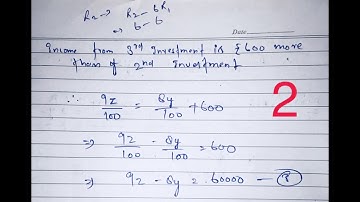 R₂ → R₂ - 6R₁
⇒ 6 - 6
Date
Income from 3rd Investment is ₹600 more
than of 2nd Investment
∴ 9z/100 = 8y/100 + 600
2
⇒ 9z/100 - 8y/100 = 600
⇒ 9z - 8y = 60000 —